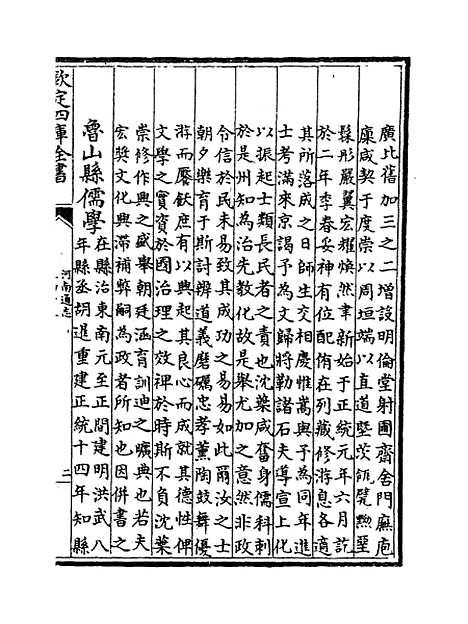 廣比舊加三之二增設明倫堂射圃齋舍門廡庖
廩咸契于度崇以周垣端以直道塈茨甋甓黝堊
髹彤嚴翼宏耀煥然聿新始于正統元年六月訖
於二年李春妥神有位配侑在列藏修游息各適
其所落成之日師生交相慶惟萬與予為同年進
士考滿來京謁予為文歸將勒諸石夫導宣上化
以振起士類長民者之責也沈藥咸奮身儒科刺
於是州知為治先教化故是舉尤加之意然非政
令信於民未易致其成功之易易如此爾汝之士
朝夕樂育于斯討辨道義磨礪忠孝薰陶鼓舞優
游而厭飫庶有以興起其良心而成就其德性俾
文學之實資於國治理之效裨於時斯不負沈葉
崇修作興之盛舉朝廷涵育訓迪之曠典也若夫
宏奬文化興滯補弊嗣為政者所知也因併書之
魯山縣儒學在縣治東南元至正間建明洪武八
年縣丞胡暹重建正統十四年知縣
欽定四庫全書
河南通志
二